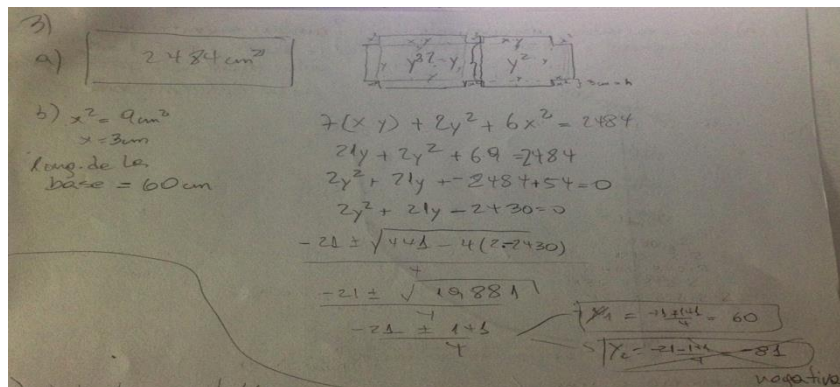 3)
a) 2484 cm²
x² xy x² xy x²
y² y y²
3cm = h
b) x² = 9cm²
x = 3cm
long. de la
base = 60 cm
7(xy) + 2y² + 6x² = 2484
21y + 2y² + 6 9 = 2484
2y² + 21y + - 2484 + 54 = 0
2y² + 21y - 2430 = 0
-21 ± √441 - 4(2·-2430)
4
-21 ± √19.881
4
-21 ± 141
4
y1 = -21+141 / 4 = 60
y2 = -21-141 / 4 = -81
negativo